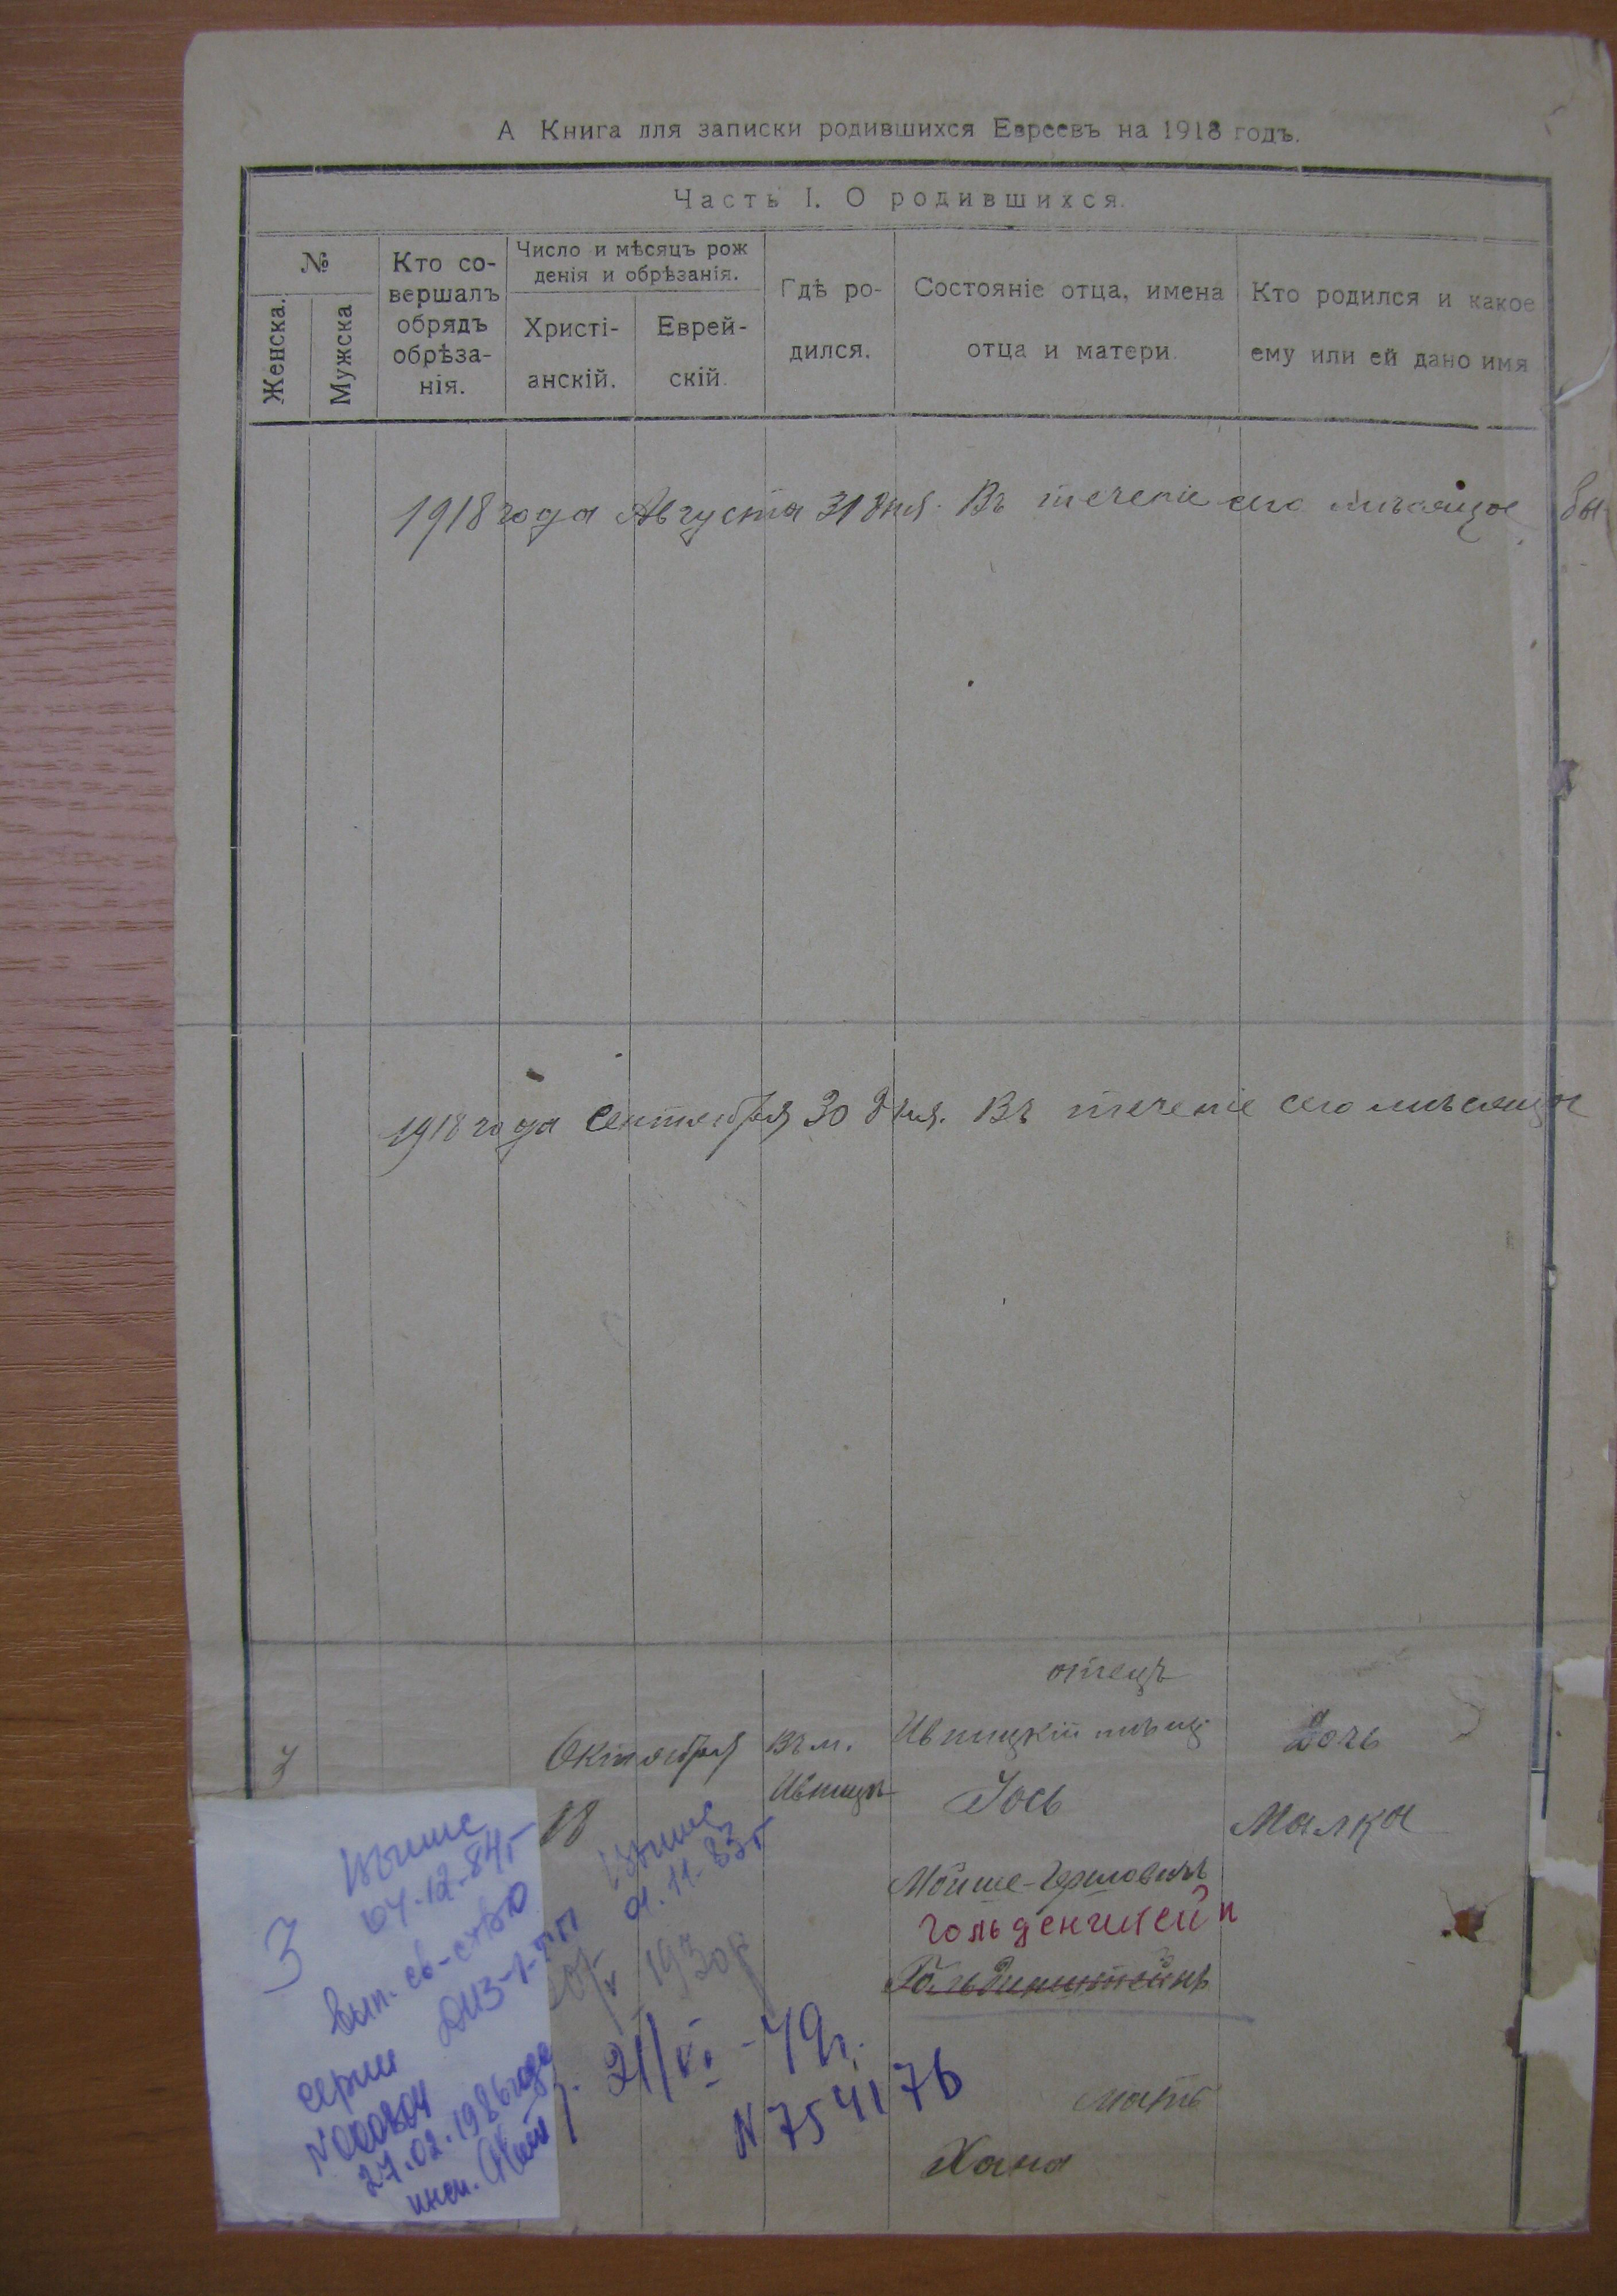 А Книга для записки родившихся Евреевъ на 1918 годъ.
Часть I. О родившихся.
№
Женска.
Мужска
Кто со-
вершалъ
обрядъ
обрѣза-
нія.
Число и мѣсяцъ рож
денія и обрѣзанія.
Христі-
анскій.
Еврей-
скій.
Гдѣ ро-
дился.
Состояніе отца, имена
отца и матери.
Кто родился и какое
ему или ей дано имя
1918 года Августа 31 дня. Въ теченіе сего мѣсяца бы-
1918 года Сентября 30 дня. Въ теченіе сего мѣсяца
3
Октября
18
Въ м.
Ивницѣ
отецъ
Ивницкій мѣщ
Іось
Мойше-Гершовичъ
Гольденштейн
Гольдинштейнъ
мать
Хана
Дочь
Малка
04.12.84г
3
вып. св-ство
серии
27.02.1986 года
01.11.83г
1930г
21/VI-49г.
N 754176